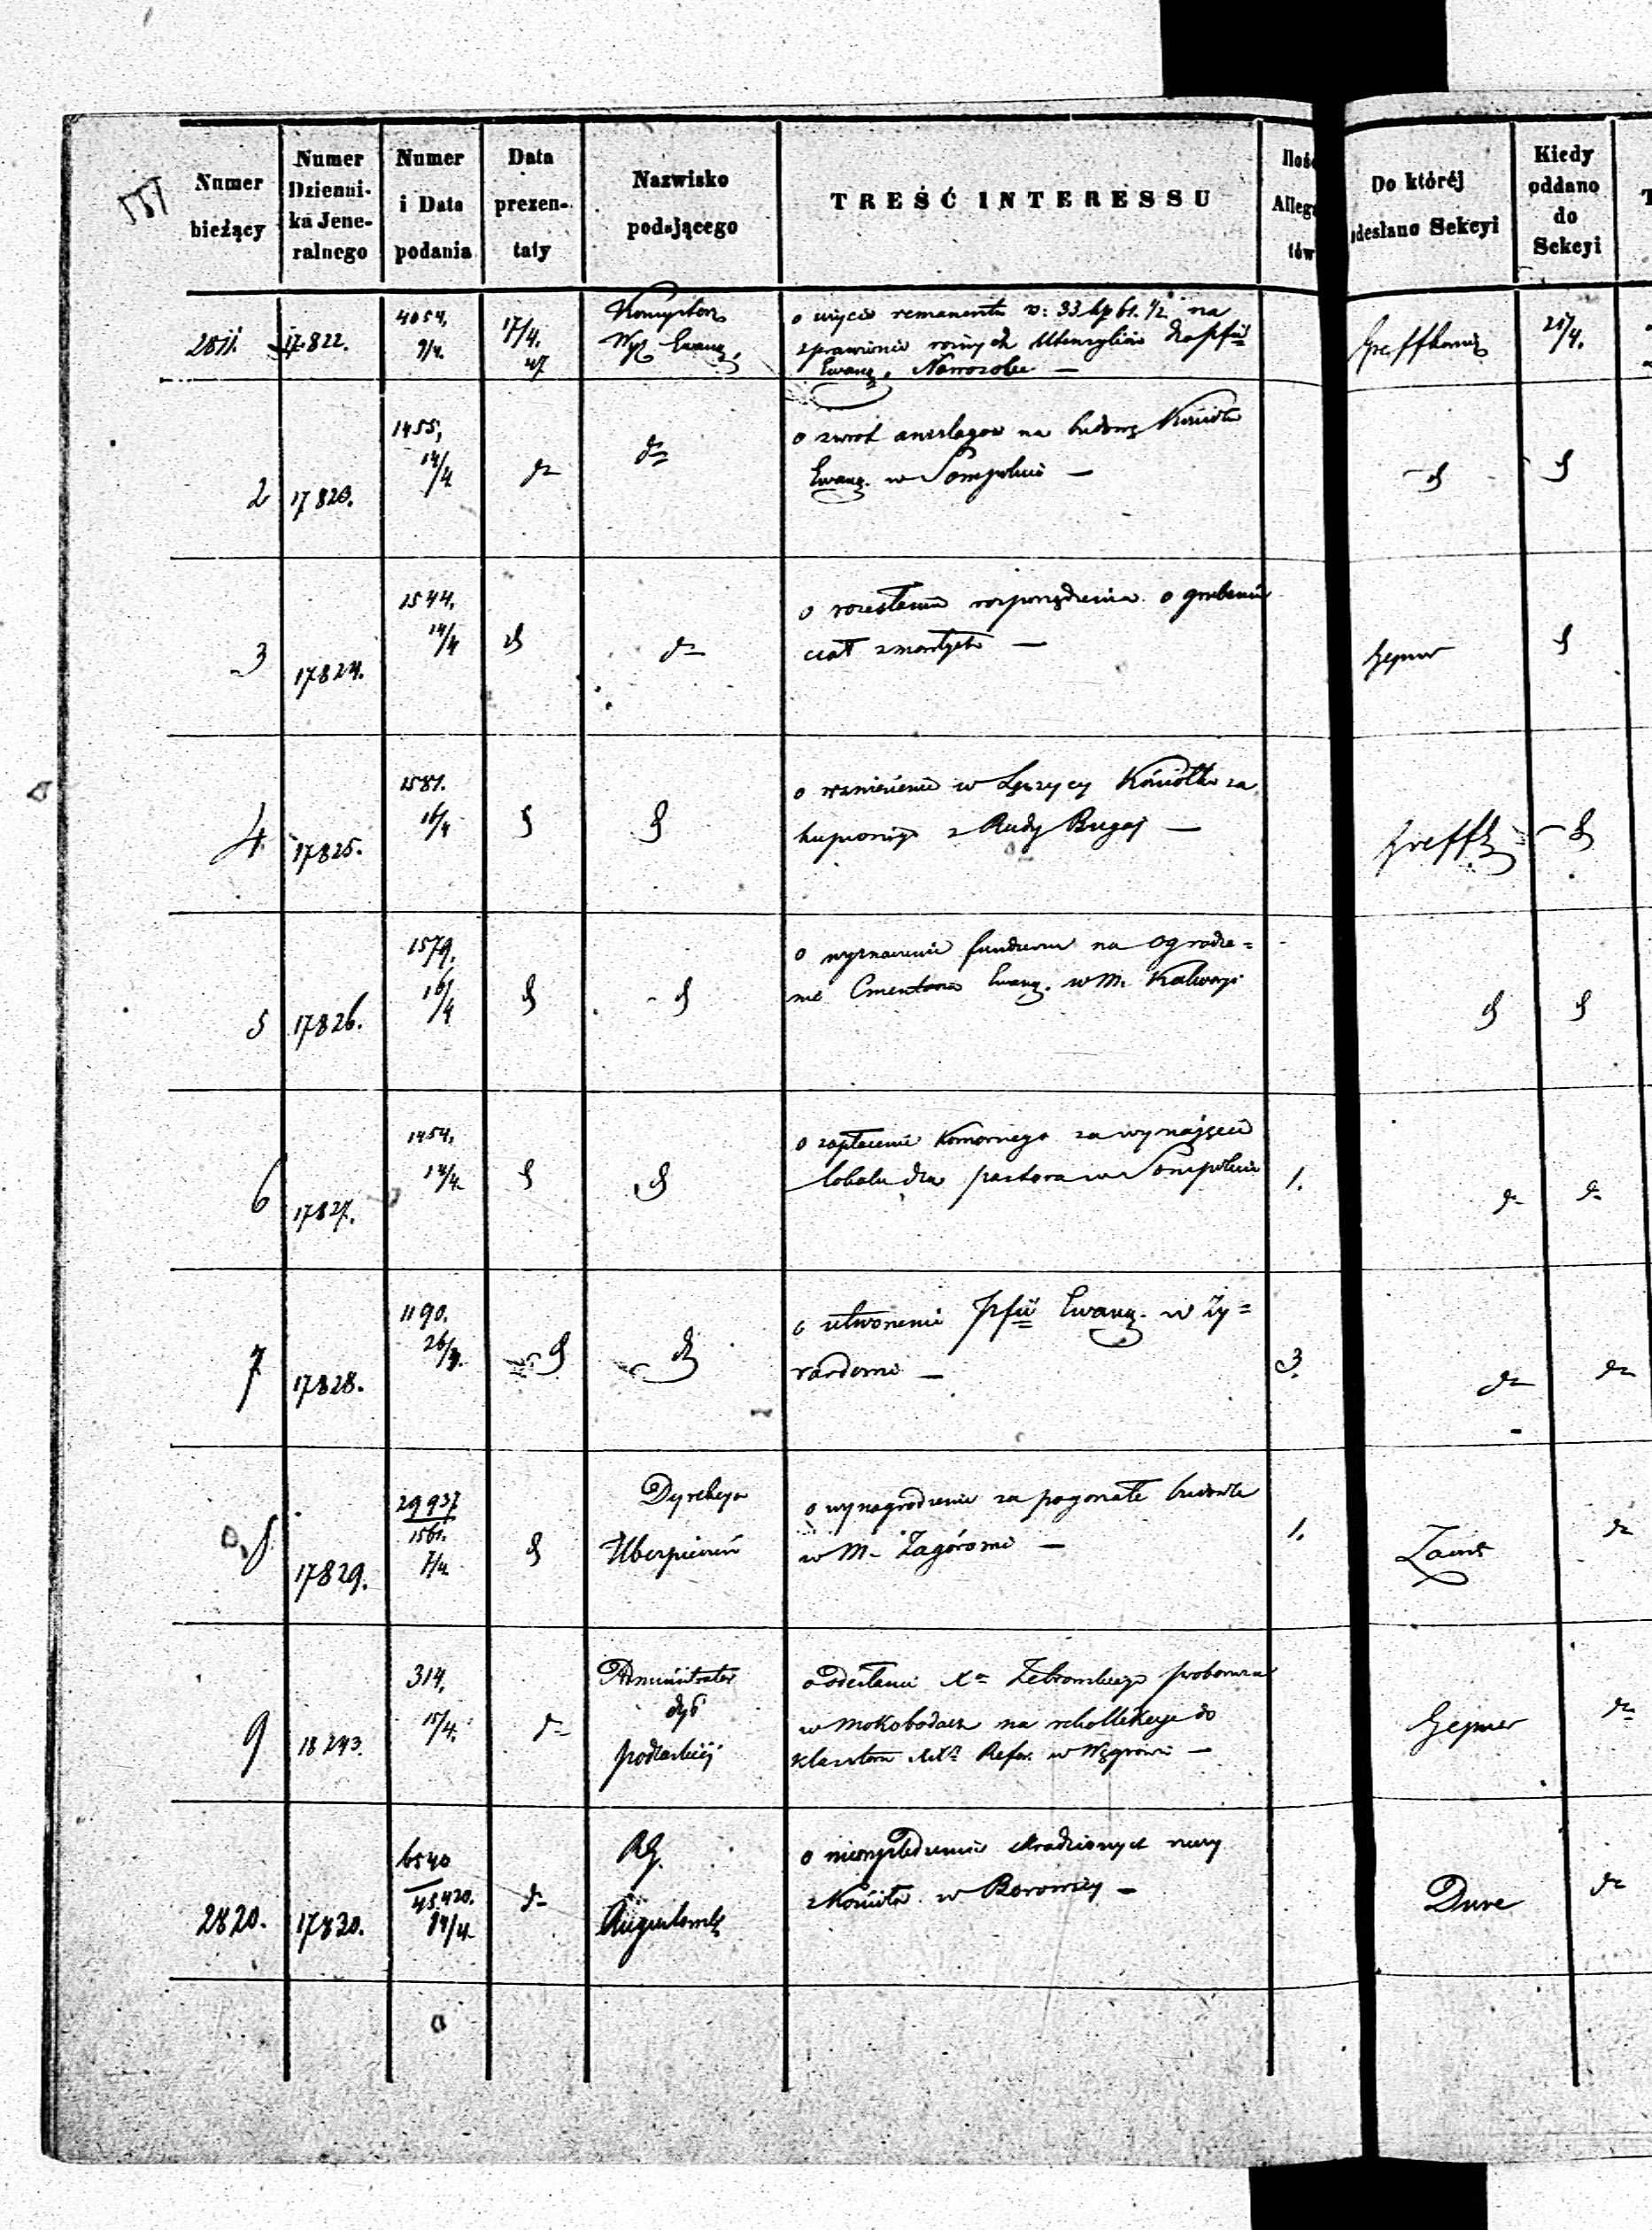 Numer
bieżący
Numer
Dzienni-
ka Jene-
ralnego
Numer
i Data
podania
Data
prezen-
taty
Nazwisko
podającego
TREŚĆ INTERESSU
Ilość
Allega
tów
Do któréj
odesłano Sekcyi
Kiedy
oddano
do
Sekcyi
2811. 17822. 4054. 9/4. 17/4.
Konsystorz
Wyz Ewang.
o użycie remanentu r: 33 kp 61 1/2 na
sprawienie różnych Utensyliów dla pfii
Ewang.
21/4.
2 17823. 1455, 14/4 do do
o zwrot anszlagów na budowę Kościoła
Ewang. w Sompolnie —
do do
3 17824. 1544. 14/4 do do
o rozesłanie rozporządzenia o grzebaniu
ciał zmarłych —
Hepner do
4 17825. 1581. 16/4 do do
o wzniesienie w Łęczycy Kościołka za
kupionego z Rudy Bugaj —
Greff do
5 17826. 1579. 16/4 do do
o wyznaczenie funduszu na ogrodze=
nie Cmentarza Ewang. w M. Kalwaryi
do do
6 17827. 1454. 14/4 do do
o zapłacenie Komornego za wynajęcie
lokalu dla pastora w Sompolnie
1. do do
7 17828. 1190. 26/3. do do
o utworzenie pfii Ewang. w Ży=
rardowie —
3. do do
8 17829. 29937 1561. 7/4 do
Dyrekcya
Ubezpieczeń
o wynagrodzenie za pogorzałe budowle
w M. Zagórowie —
1. do
9 18243. 314. 15/4. do
Administrator
dyé
podlaskiéj
o odesłanie Xa Żebrowskiego proboszcza
w Mokobodach na rekollekcye do
klasztoru XXy Refor. w Węgrowie —
Hepner do
2820. 17830. 6540 45.420. 14/4 do
RG.
Augustowski
o niewyśledzenie skradzionych rzeczy
z Kościoła w
Duve do